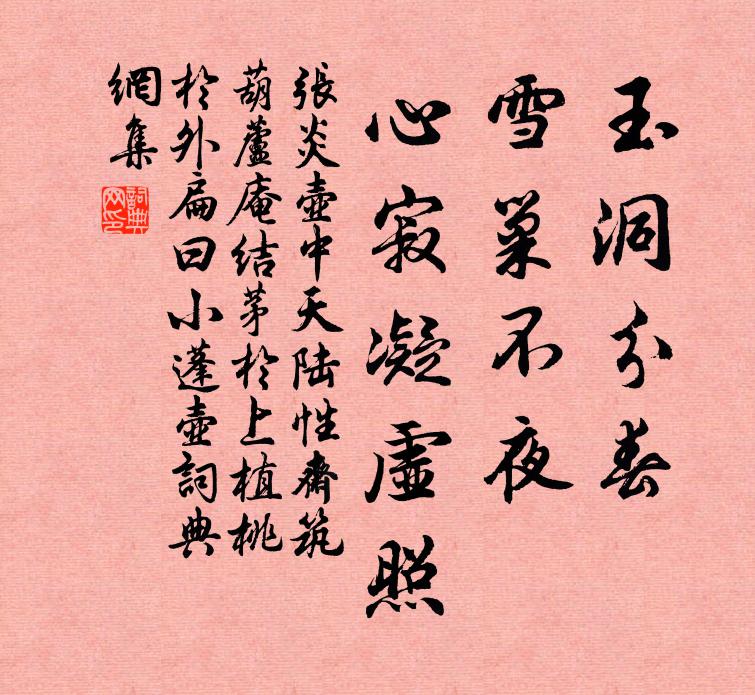 玉洞分春
雪巢不夜
心寂凝虛照
張炎壺中天陆性齋筑
葫蘆庵結茅於上植桃
於外扁曰小蓬壺詞典
網集
詞典
网印